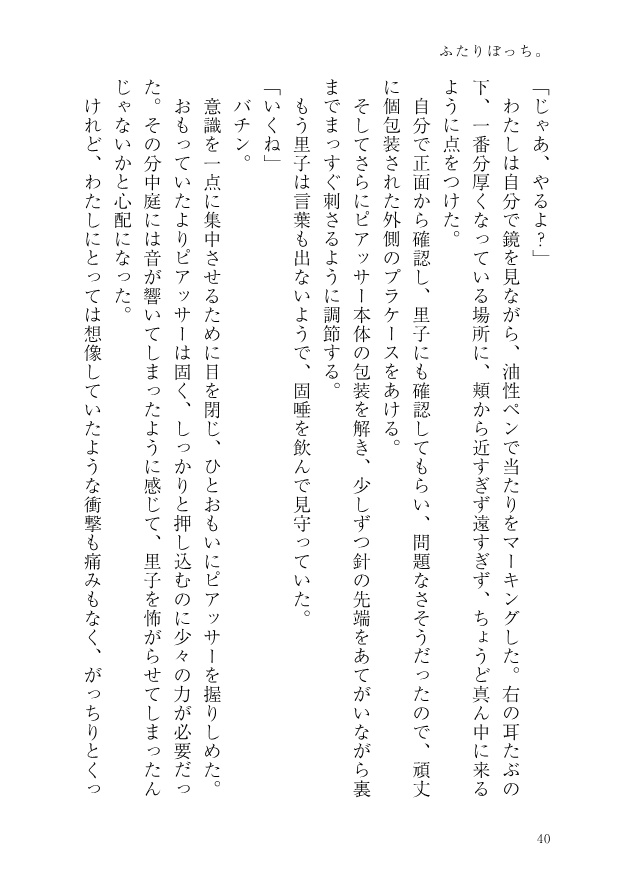 ふたりぼっち。
「じゃあ、やるよ？」
　わたしは自分で鏡を見ながら、油性ペンで当たりをマーキングした。右の耳たぶの
下、一番分厚くなっている場所に、頬から近すぎず遠すぎず、ちょうど真ん中に来る
ように点をつけた。
　自分で正面から確認し、里子にも確認してもらい、問題なさそうだったので、頑丈
に個包装された外側のプラケースをあける。
　そしてさらにピアッサー本体の包装を解き、少しずつ針の先端をあてがいながら裏
までまっすぐ刺さるように調節する。
　もう里子は言葉も出ないようで、固唾を飲んで見守っていた。
「いくね」
　バチン。
　意識を一点に集中させるために目を閉じ、ひとおもいにピアッサーを握りしめた。
　おもっていたよりピアッサーは固く、しっかりと押し込むのに少々の力が必要だっ
た。その分中庭には音が響いてしまったように感じて、里子を怖がらせてしまったん
じゃないかと心配になった。
　けれど、わたしにとっては想像していたような衝撃も痛みもなく、がっちりとくっ
40